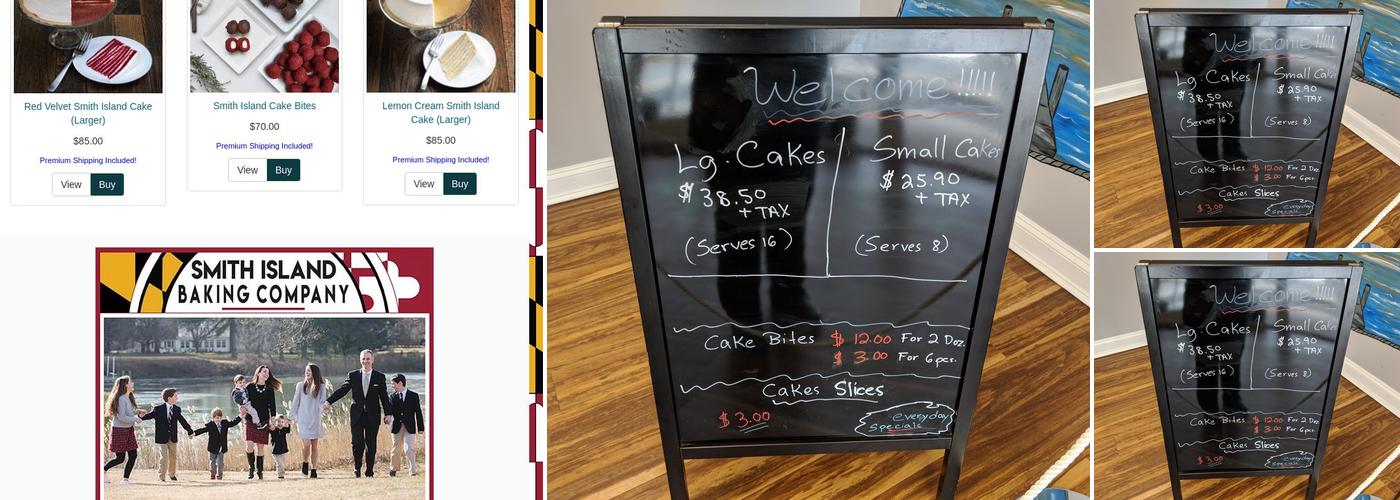 Red Velvet Smith Island Cake
(Larger)
$85.00
Premium Shipping Included!
View Buy
Smith Island Cake Bites
$70.00
Premium Shipping Included!
View Buy
Lemon Cream Smith Island
Cake (Larger)
$85.00
Premium Shipping Included!
View Buy
SMITH ISLAND
BAKING COMPANY
Welcome !!!!!
Lg. Cakes
$38.50
+ TAX
(Serves 16)
Small Cakes
$25.90
+ TAX
(Serves 8)
Cake Bites $12.00 For 2 Doz.
$3.00 For 6 pcs.
Cakes Slices
$3.00
everyday
Specials
Welcome !!!!!
Lg. Cakes
$38.50
+ TAX
(Serves 16)
Small Cakes
$25.90
+ TAX
(Serves 8)
Cake Bites $12.00 For 2 Doz.
$3.00 For 6 pcs.
Cakes Slices
$3.00
everyday
Specials
Welcome !!!!!
Lg. Cakes
$38.50
+ TAX
(Serves 16)
Small Cakes
$25.90
+ TAX
(Serves 8)
Cake Bites $12.00 For 2 Doz.
$3.00 For 6 pcs.
Cakes Slices
$3.00
everyday
Specials